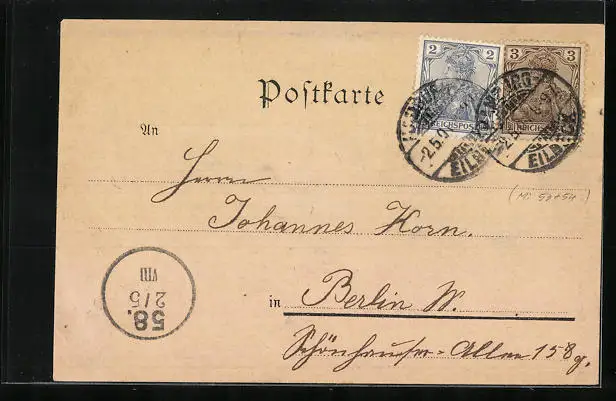 2 3
REICHSPOST
Postkarte
EILBECK EILBECK
2.5.0
An
Herrn
(Mi 53+54)
Johannes Korn.
58.
2/5
VIII
in Berlin W.
Schönhauser-Allee 158 g.